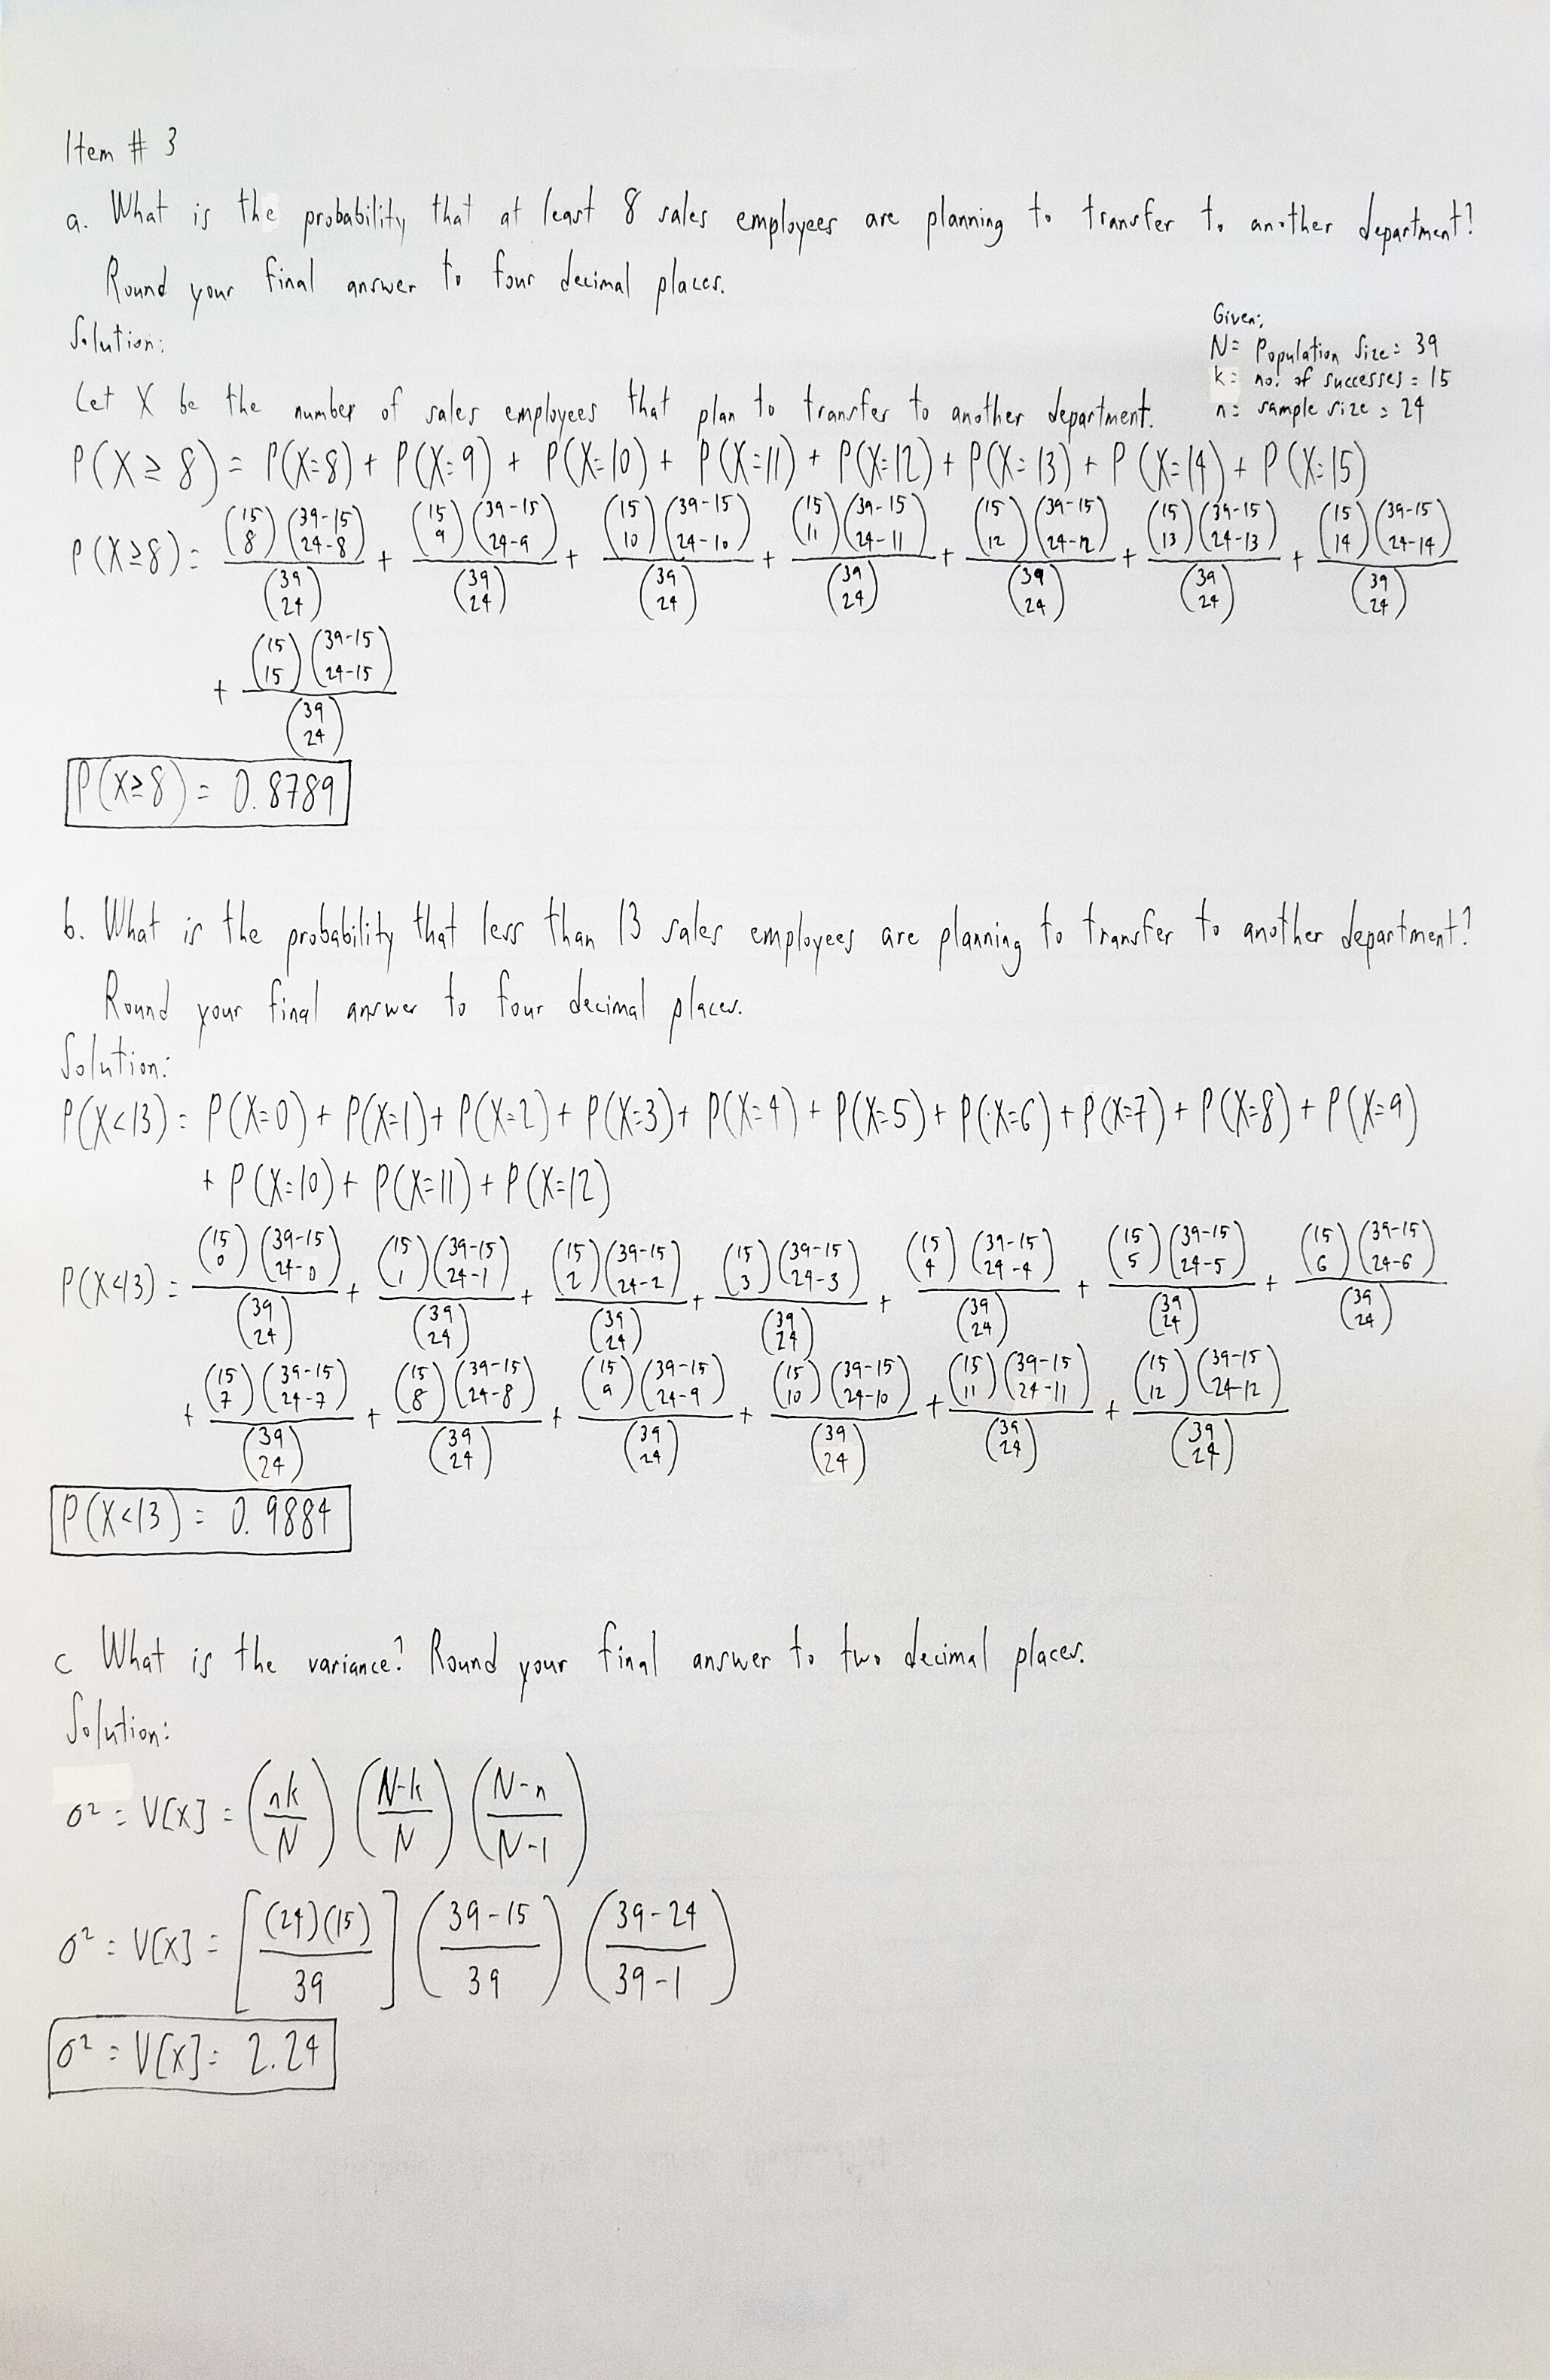 Item # 3
a. What is the probability that at least 8 sales employees are planning to transfer to another department?
Round your final answer to four decimal places.
Solution:
Given:
N = Population Size = 39
k = no. of successes = 15
n = sample size = 24
Let X be the number of sales employees that plan to transfer to another department.
P(X ≥ 8) = P(X=8) + P(X=9) + P(X=10) + P(X=11) + P(X=12) + P(X=13) + P(X=14) + P(X=15)
P(X≥8) = (15 8)(39-15 24-8)/(39 24) + (15 9)(39-15 24-9)/(39 24) + (15 10)(39-15 24-10)/(39 24) + (15 11)(39-15 24-11)/(39 24) + (15 12)(39-15 24-12)/(39 24) + (15 13)(39-15 24-13)/(39 24) + (15 14)(39-15 24-14)/(39 24)
+ (15 15)(39-15 24-15)/(39 24)
P(X≥8) = 0.8789
b. What is the probability that less than 13 sales employees are planning to transfer to another department?
Round your final answer to four decimal places.
Solution:
P(X<13) = P(X=0) + P(X=1) + P(X=2) + P(X=3) + P(X=4) + P(X=5) + P(X=6) + P(X=7) + P(X=8) + P(X=9)
+ P(X=10) + P(X=11) + P(X=12)
P(X<13) = (15 0)(39-15 24-0)/(39 24) + (15 1)(39-15 24-1)/(39 24) + (15 2)(39-15 24-2)/(39 24) + (15 3)(39-15 24-3)/(39 24) + (15 4)(39-15 24-4)/(39 24) + (15 5)(39-15 24-5)/(39 24) + (15 6)(39-15 24-6)/(39 24)
+ (15 7)(39-15 24-7)/(39 24) + (15 8)(39-15 24-8)/(39 24) + (15 9)(39-15 24-9)/(39 24) + (15 10)(39-15 24-10)/(39 24) + (15 11)(39-15 24-11)/(39 24) + (15 12)(39-15 24-12)/(39 24)
P(X<13) = 0.9884
c What is the variance? Round your final answer to two decimal places.
Solution:
σ² = V[X] = (nk/N) (N-k/N) (N-n/N-1)
σ² = V[X] = [(24)(15)/39] (39-15/39) (39-24/39-1)
σ² = V[X] = 2.24